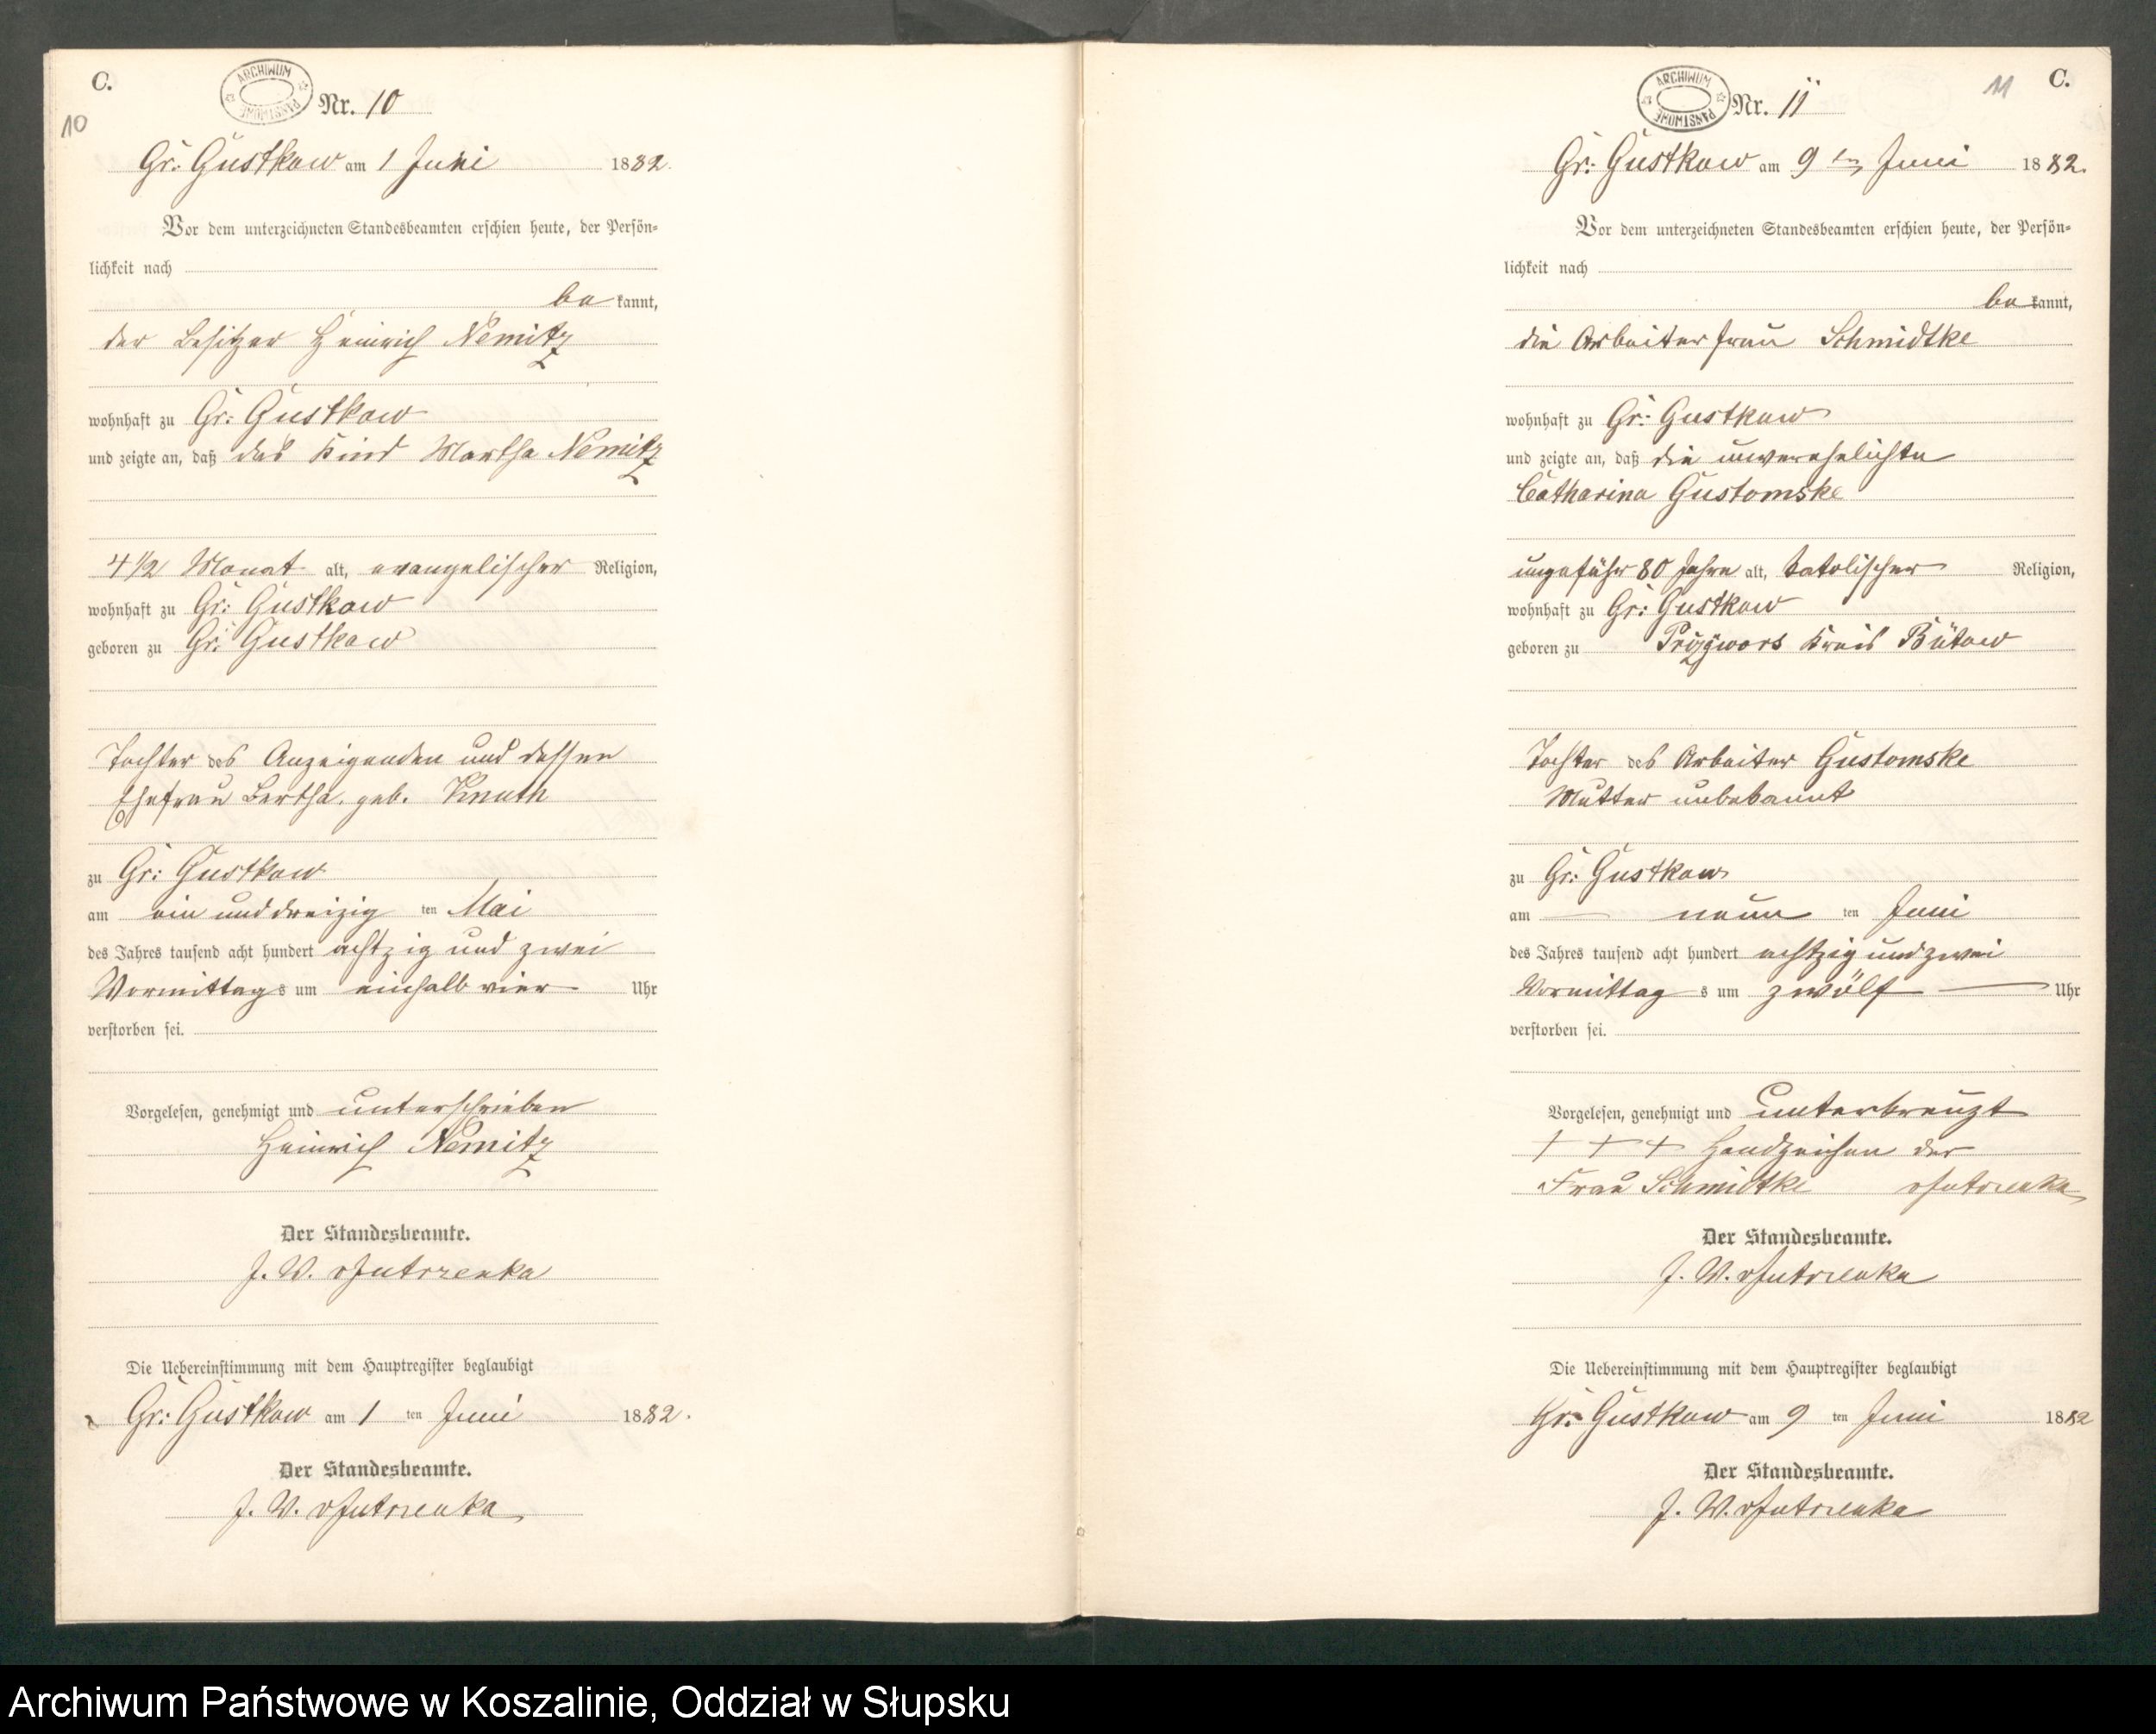 C.
ARCHIWUM PAŃSTWOWE
10
Nr. 10
Gr: Gustkow am 1 Juni 1882.
Vor dem unterzeichneten Standesbeamten erschien heute, der Persön-
lichkeit nach
be kannt,
der Besitzer Heinrich Nemitz
wohnhaft zu Gr: Gustkow
und zeigte an, daß das Kind Martha Nemitz
4 1/2 Monat alt, evangelischer Religion,
wohnhaft zu Gr: Gustkow
geboren zu Gr: Gustkow
Tochter des Anzeigenden und dessen
Ehefrau Bertha geb. Knuth
zu Gr: Gustkow
am ein und dreizig ten Mai
des Jahres tausend acht hundert achtzig und zwei
Vormittags um einhalb vier Uhr
verstorben sei.
Vorgelesen, genehmigt und unterschrieben
Heinrich Nemitz
Der Standesbeamte.
J. V.
Die Uebereinstimmung mit dem Hauptregister beglaubigt
Gr: Gustkow am 1 ten Juni 1882.
Der Standesbeamte.
J. V.
C.
11
ARCHIWUM PAŃSTWOWE
Nr. 11
Gr: Gustkow am 9 ten Juni 1882.
Vor dem unterzeichneten Standesbeamten erschien heute, der Persön-
lichkeit nach
be kannt,
die Arbeiterfrau Schmidtke
wohnhaft zu Gr: Gustkow
und zeigte an, daß die unverehelichte
Catharina Gustomske
ungefähr 80 Jahre alt, katolischer Religion,
wohnhaft zu Gr: Gustkow
geboren zu Kreis Bütow
Tochter des Arbeiter Gustomske
Mutter unbekannt
zu Gr: Gustkow
am neun ten Juni
des Jahres tausend acht hundert achtzig und zwei
Vormittag s um zwölf Uhr
verstorben sei.
Vorgelesen, genehmigt und unterkreuzt
+ + + Handzeichen der
Frau Schmidtke
Der Standesbeamte.
J. V.
Die Uebereinstimmung mit dem Hauptregister beglaubigt
Gr: Gustkow am 9 ten Juni 1882
Der Standesbeamte.
J. V.
Archiwum Państwowe w Koszalinie, Oddział w Słupsku